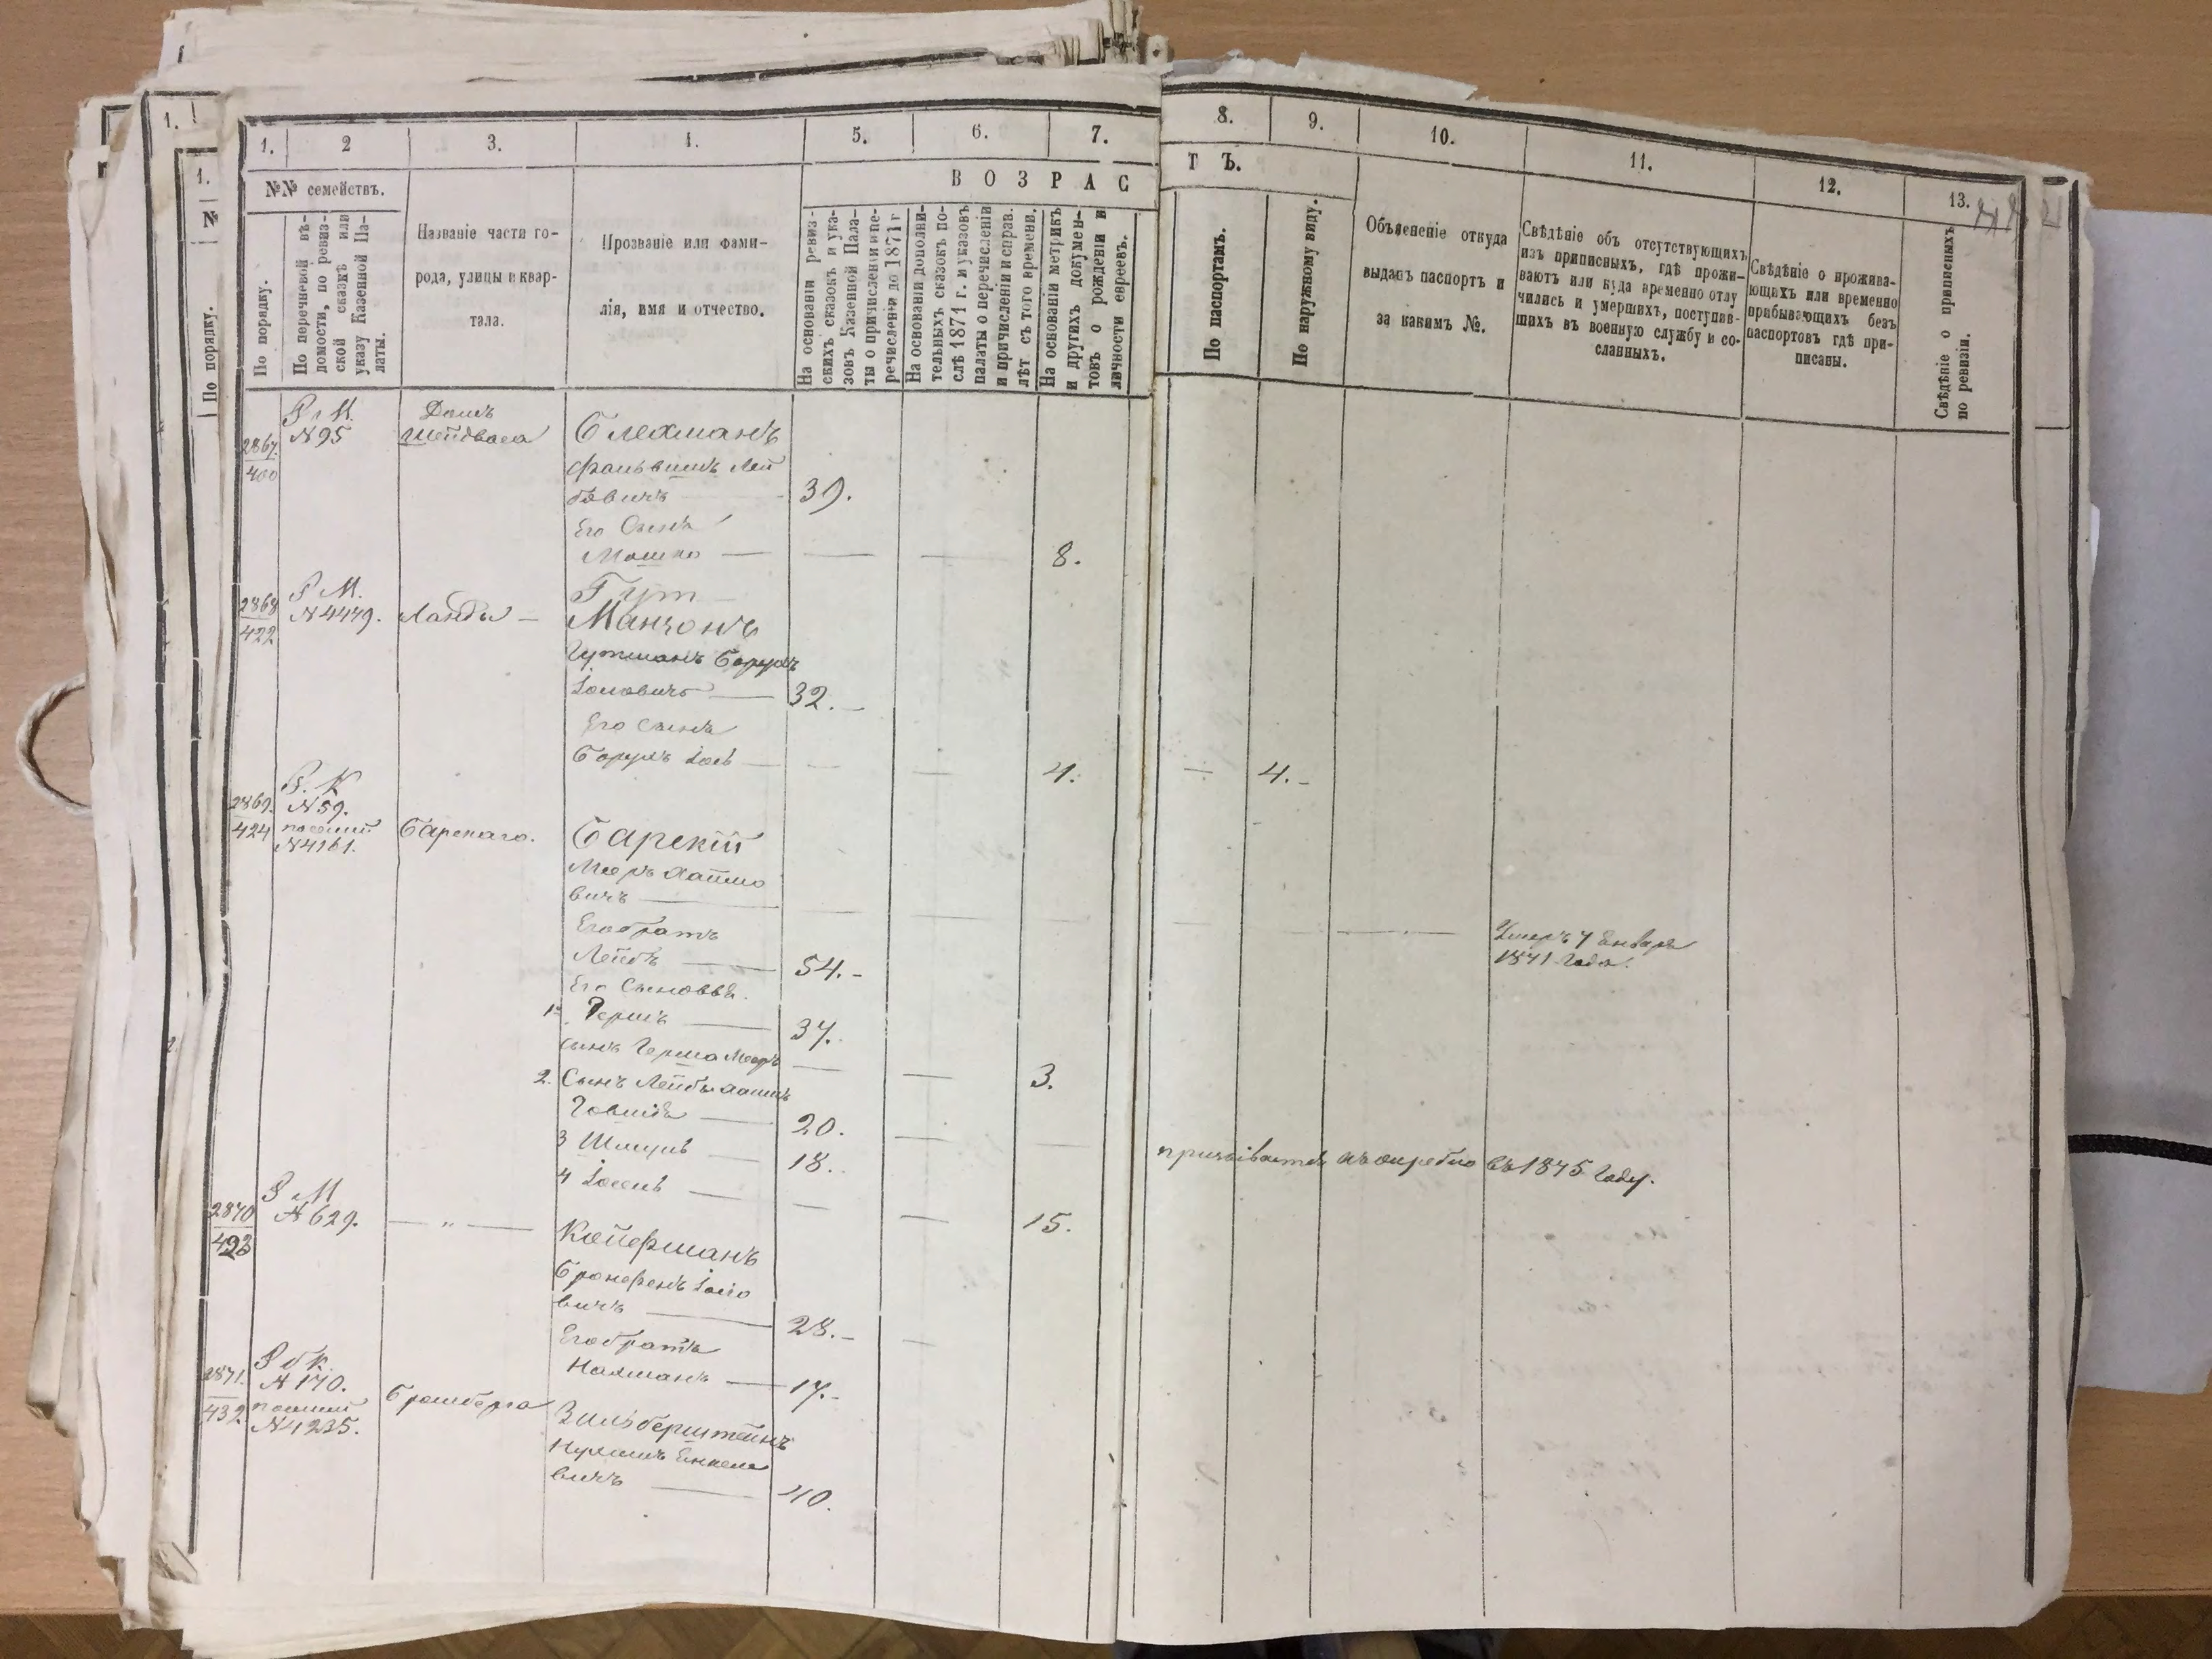 1.
2
3.
4.
5.
6.
7.
8.
9.
10.
11.
12.
13.
№№ семействъ.
ВОЗРАС
ТЪ.
По порядку.
По перечневой вѣ-
домости, по ревиз-
ской сказкѣ или
указу Казенной Па-
латы.
Названіе части го-
рода, улицы и квар-
тала.
Прозваніе или фами-
лія, имя и отчество.
На основаніи ревиз-
скихъ сказокъ и ука-
зовъ Казенной Пала-
ты о причисленіи и пе-
речисленіи до 1871 г
На основаніи дополни-
тельныхъ сказокъ по-
слѣ 1871 г. и указовъ
палаты о перечисленіи
и причисленіи и справ.
лѣт съ того времени.
На основаніи метрикъ
и другихъ докумен-
товъ о рожденіи и
личности евреевъ.
По паспортамъ.
По наружному виду.
Объясненіе откуда
выданъ паспортъ и
за какимъ №.
Свѣдѣніе объ отсутствующихъ
изъ приписныхъ, гдѣ прожи-
ваютъ или куда временно отлу
чились и умершихъ, поступив-
шихъ въ военную службу и со-
сланныхъ.
Свѣдѣніе о прожива-
ющихъ или временно
прибывающихъ безъ
паспортовъ гдѣ при-
писаны.
Свѣдѣніе о приписныхъ
по ревизіи.
1.
1.
№
По порядку.
2867.
400
N 95
Домъ
Блехманъ
Лей
бовичъ — 39.
Его Сынъ
Мошко — — — 8.
2868
422
Р М.
N 4479.
Ланды —
Гут —
Манзонъ
Гутманъ Борухъ
Іосіовичъ — 32. —
Его сынъ
Борухъ Іось — — — 4. — 4. —
2869.
424
Р. К
N 59.
N 4161.
Барскаго.
Барскій
Мееръ Хаимо
вичъ — — — — — — Умеръ 7 Января
1871 Года.
Его братъ
Лейбъ — 54. —
Его Сыновья.
1. Гершъ — 37.
сынъ Герша Мееръ — — 3.
2. Сынъ Лейбы Хаимъ
— 20. —
3 Шмуль — 18. — призывается къ жребію въ 1875 Году.
4 Іосель — — — 15.
2870
493
Р М
N 629.
— " —
Койферманъ
Іосіо
вичъ — 28. — —
Его братъ
Нахманъ — 17. —
2871.
432
N 170.
N 4235.
Бромберга
Зильберштейнъ
Нухимъ Енкеле
вичъ — 40.